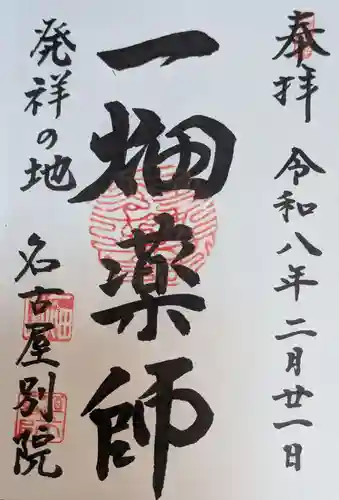 奉拝 令和八年二月廿一日
一畑薬師
発祥の地
名古屋別院